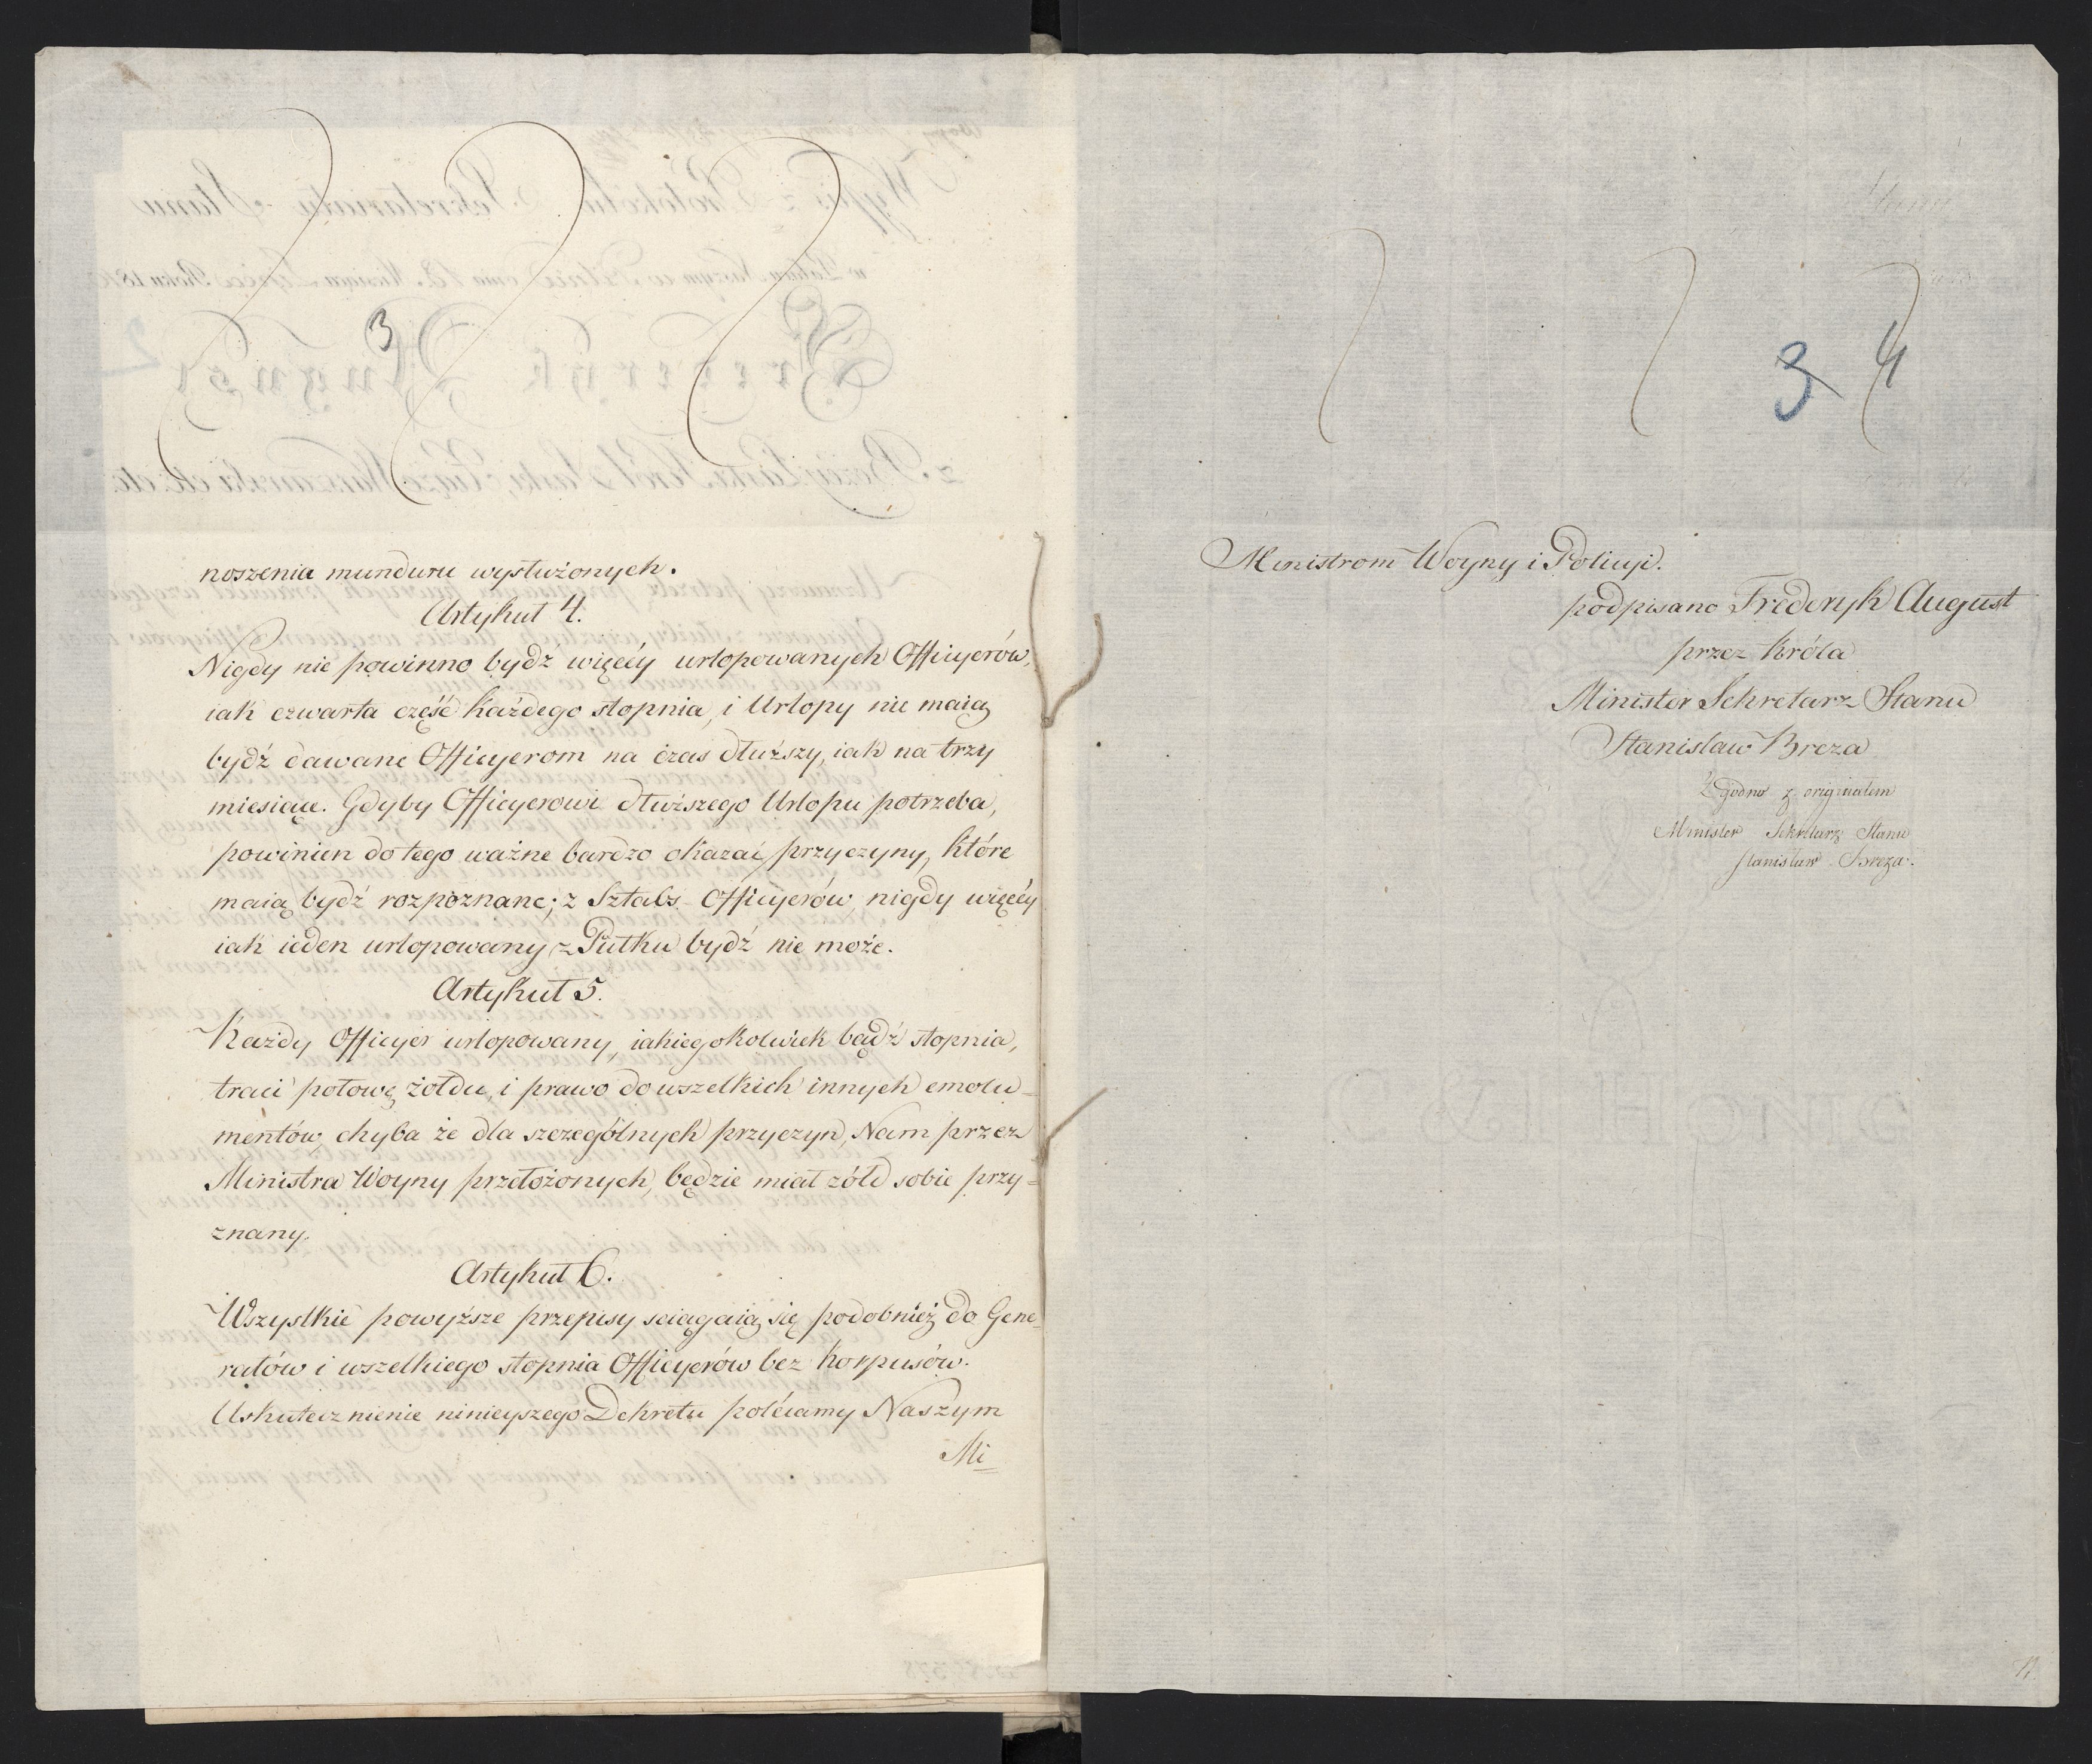 3
noszenia munduru wysłużonych.
Artykuł 4.
Nigdy nie powinno bydź więcéy urlopowanych Officyerów,
iak czwarta część każdego stopnia, i Urlopy nie maią
bydź dawane Officyerom na czas dłuższy, iak na trzy
miesiące. Gdyby Officyerowi dłuższego Urlopu potrzeba,
powinien do tego ważne bardzo okazać przyczyny, które
maią bydź rozpoznane; z Sztabs-Officyerów nigdy więcéy
iak ieden urlopowany z Pułku bydź nie może.
Artykuł 5.
Każdy Officyer urlopowany, iakiegokolwiek bądź stopnia,
traci połowę żołdu, i prawo do wszelkich innych emolu=
mentów, chyba że dla szczególnych przyczyn, Nam przez
Ministra Woyny przełożonych, będzie miał żółd sobie przy=
znany.
Artykuł 6.
Wszystkie powyższe przepisy sciągaią się podobnież do Gene=
rałów i wszelkiego stopnia Officyerów bez Korpusów.
Uskutecznienie ninieyszego Dekretu polécamy Naszym
Mi=
3 4
Ministrom Woyny i Policyi.
podpisano Frederyk August
przez Króla
Minister Sekretarz Stanu
Stanisław Breza
Zgodno z originałem
Minister Sekretarz Stanu
Stanisław Breza.